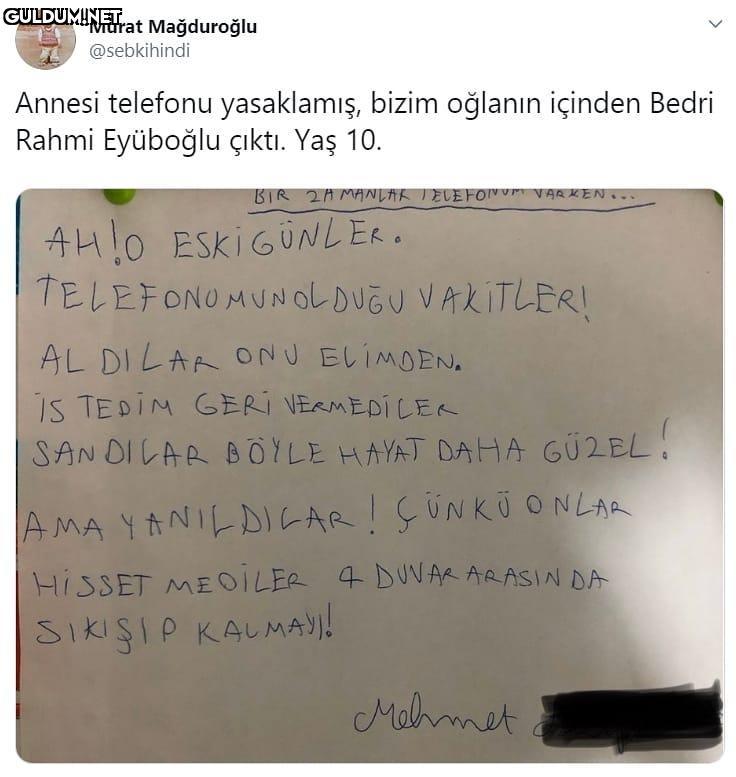 GULDUM.NET
Murat Mağduroğlu
@sebkihindi
Annesi telefonu yasaklamış, bizim oğlanın içinden Bedri
Rahmi Eyüboğlu çıktı. Yaş 10.
BIR ZAMANLAR TELEFONUM VARKEN...
AH!O ESKİGÜNLER.
TELEFONUMUNOLDUĞU VAKİTLER!
ALDILAR ONU ELİMDEN.
İSTEDİM GERİ VERMEDİLER
SANDILAR BÖYLE HAYAT DAHA GÜZEL!
AMA YANILDILAR! ÇÜNKÜ ONLAR
HİSSETMEDİLER 4 DUVAR ARASINDA
SIKIŞIP KALMAYI!
Mehmet